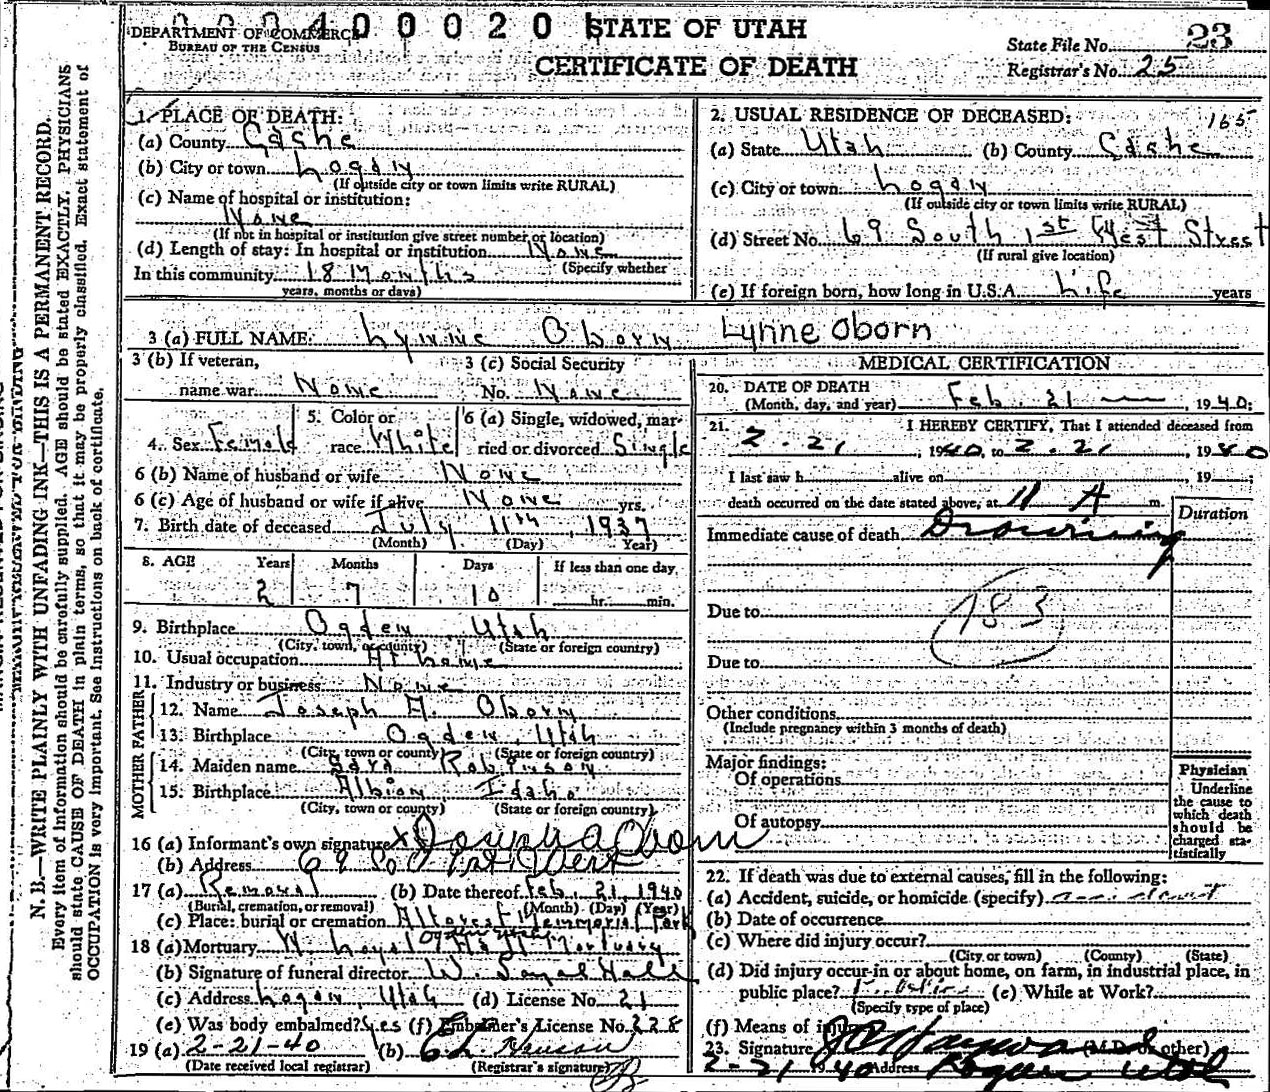 0 0 0 4 0 0 0 2 0 1 STATE OF UTAH
DEPARTMENT OF COMMERCE
BUREAU OF THE CENSUS
CERTIFICATE OF DEATH
State File No. 23
Registrar's No. 25
N. B.—WRITE PLAINLY WITH UNFADING INK—THIS IS A PERMANENT RECORD.
Every item of information should be carefully supplied. AGE should be stated EXACTLY. PHYSICIANS
should state CAUSE OF DEATH in plain terms, so that it may be properly classified. Exact statement of
OCCUPATION is very important. See instructions on back of certificate.
1. PLACE OF DEATH:
(a) County Cache
(b) City or town Logan
(If outside city or town limits write RURAL)
(c) Name of hospital or institution:
None
(If not in hospital or institution give street number or location)
(d) Length of stay: In hospital or institution None
(Specify whether
In this community 18 Months
years, months or days)
2. USUAL RESIDENCE OF DECEASED: 165
(a) State Utah (b) County Cache
(c) City or town Logan
(If outside city or town limits write RURAL)
(d) Street No. 69 South 1st West Street
(If rural give location)
(e) If foreign born, how long in U.S.A. Life years
3 (a) FULL NAME: Lynne Oborn Lynne Oborn
3 (b) If veteran,
name war None
3 (c) Social Security
No. None
4. Sex Female
5. Color or
race White
6 (a) Single, widowed, mar-
ried or divorced Single
6 (b) Name of husband or wife None
6 (c) Age of husband or wife if alive None yrs.
7. Birth date of deceased July 11th, 1937
(Month) (Day) Year)
8. AGE Years Months Days If less than one day
2 7 10 hr. min.
9. Birthplace Ogden, Utah
(City, town, or county) (State or foreign country)
10. Usual occupation At home
11. Industry or business None
FATHER
12. Name Joseph A. Oborn
13. Birthplace Ogden, Utah
(City, town or county) (State or foreign country)
MOTHER
14. Maiden name Sara Robinson
15. Birthplace Albion Idaho
(City, town or county) (State or foreign country)
16 (a) Informant's own signature x Joseph A Oborn
(b) Address 69 So 1st West
17 (a) Removal (b) Date thereof Feb. 21, 1940
(Burial, cremation, or removal) (Month) (Day) (Year)
(c) Place: burial or cremation Memorial Park
18 (a) Mortuary W. Loyal Hall Mortuary
(b) Signature of funeral director W. Loyal Hall
(c) Address Logan, Utah (d) License No. 21
(e) Was body embalmed? Yes (f) Embalmer's License No. 228
19 (a) 2-21-40 (b)
(Date received local registrar) (Registrar's signature)
MEDICAL CERTIFICATION
20. DATE OF DEATH
(Month, day, and year) Feb. 21, 1940
21. I HEREBY CERTIFY, That I attended deceased from
2-21, 1940, to 2-21, 1940
I last saw h alive on , 19 ;
death occurred on the date stated above, at 11 A m.
Duration
Immediate cause of death Drowning
183
Due to
Due to
Other conditions
(Include pregnancy within 3 months of death)
Major findings:
Of operations
Of autopsy
Physician
Underline
the cause to
which death
should be
charged sta-
tistically
22. If death was due to external causes, fill in the following:
(a) Accident, suicide, or homicide (specify)
(b) Date of occurrence
(c) Where did injury occur?
(City or town) (County) (State)
(d) Did injury occur in or about home, on farm, in industrial place, in
public place? (e) While at Work?
(Specify type of place)
(f) Means of injury
23. Signature (M.D. or other)
2-21 1940 Address Logan Utah